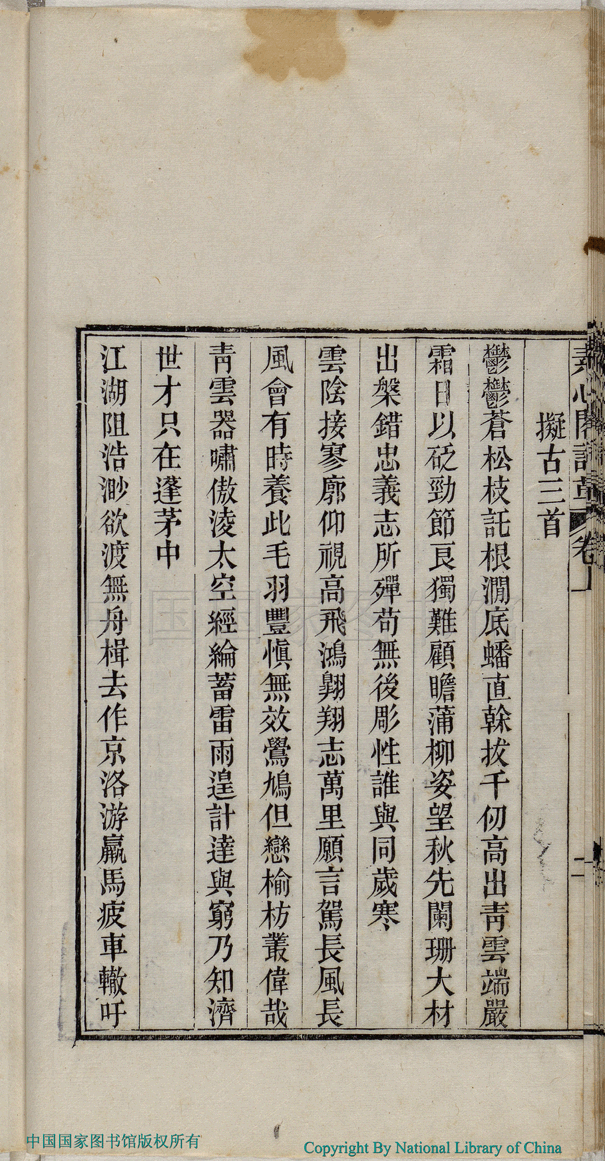 素心閣詩草 卷上
擬古三首
鬱鬱蒼松枝託根澗底蟠直榦拔千仞高出靑雲端嚴
霜日以砭勁節良獨難顧瞻蒲柳姿望秋先闌珊大材
出槃錯忠義志所殫苟無後彫性誰與同歲寒
雲陰接寥廓仰視高飛鴻翺翔志萬里願言駕長風長
風會有時養此毛羽豐愼無效鷽鳩但戀榆枋叢偉哉
靑雲器嘯傲淩太空經綸蓄雷雨遑計達與窮乃知濟
世才只在蓬茅中
江湖阻浩渺欲渡無舟楫去作京洛游羸馬疲車轍吁
中国国家图书馆版权所有
Copyright By National Library of China